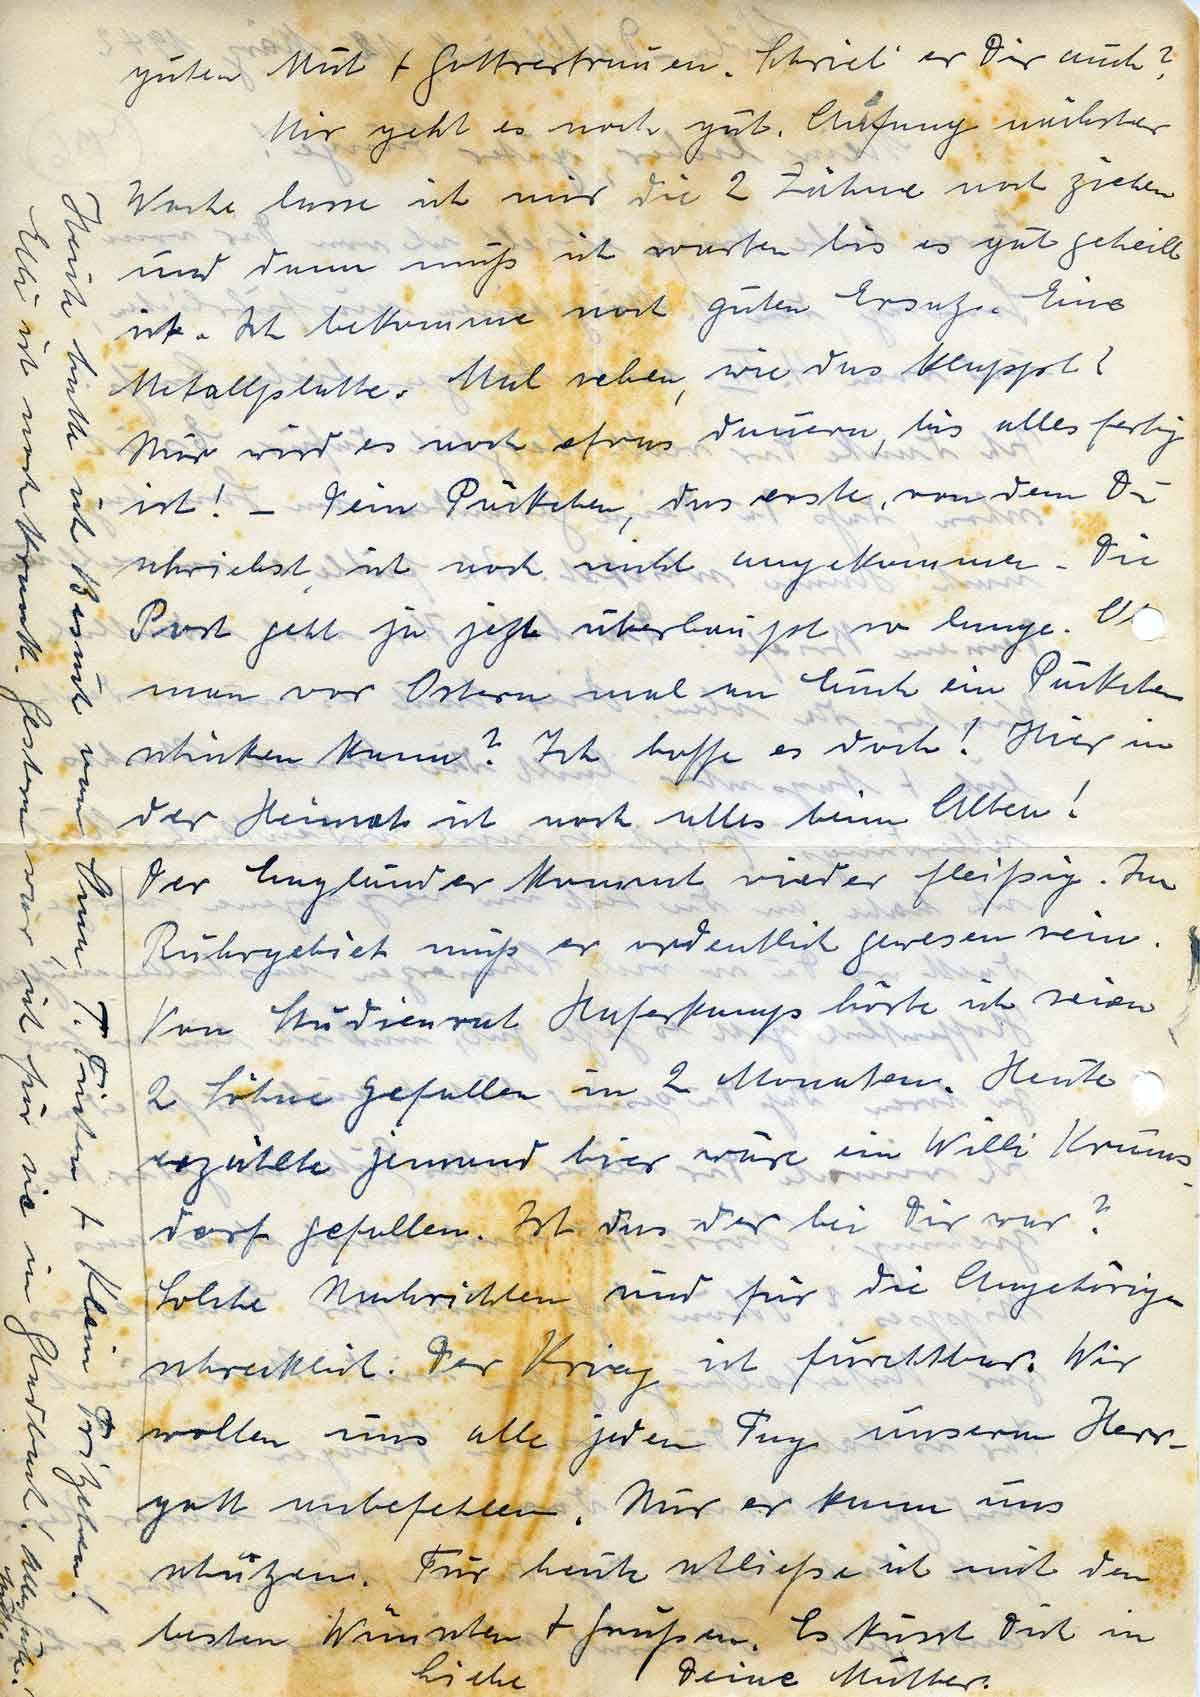 guten Mut + Gottvertrauen. Schrieb er Dir auch?
Mir geht es noch gut. Anfang nächster
Woche lasse ich mir die 2 Zähne noch ziehen
und dann muß ich warten bis es gut geheilt
ist. Ich bekomme noch guten Ersatz. Eine
Metallplatte. Mal sehen, wie das klappt?
Nur wird es noch etwas dauern, bis alles fertig
ist! – Dein Päckchen, das erste, von dem Du
schriebst, ist noch nicht angekommen. Die
Post geht ja jetzt überhaupt so lange. Ob
man vor Ostern mal an Euch ein Päckchen
schicken kann? Ich hoffe es doch! Hier in
der Heimat ist noch alles beim Alten!
Der Engländer kommt wieder fleißig. Im
Ruhrgebiet muß er ordentlich gewesen sein.
Von Studienrat Haferkamps hörte ich seien
2 Söhne gefallen in 2 Monaten. Heute
erzählte jemand hier wäre ein Willi Krums-
dorf gefallen. Ist das der bei Dir war?
Solche Nachrichten sind für die Angehörigen
schrecklich. Der Krieg ist furchtbar. Wir
wollen uns alle jeden Tag unserm Herr-
gott anbefehlen. Nur er kann uns
schützen. Für heute schließe ich mit den
besten Wünschen + Grüßen. Es küsst Dich in
Liebe Deine Mutter.
Heute hatte ich Besuch von Oma, T. + Klein Fritzchen!
Elli ist noch krank. Gestern war ich für sie in Gladbach!